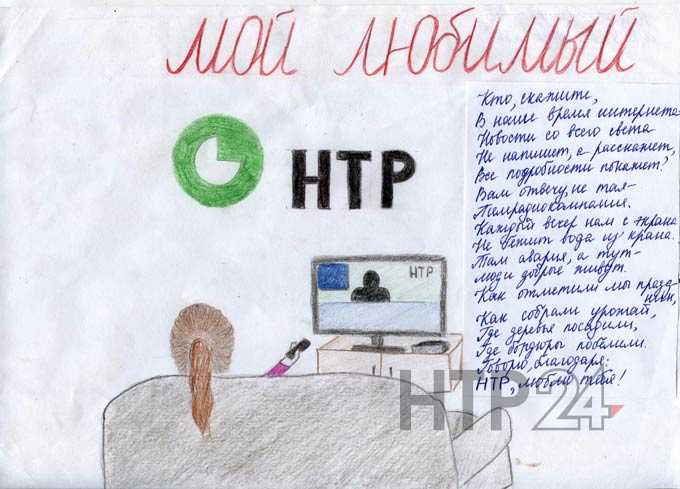 МОЙ ЛЮБИМЫЙ
НТР
Кто, скажите,
В наше время интернета
Новости со всего света
Не напишет, а расскажет,
Все подробности покажет?
Вам отвечу, не тая –
Телерадиокомпания.
Каждый вечер нам с экрана
Не бежит вода из крана.
Там авария, а тут –
люди добрые живут.
Как отметили мы праздник,
Как собрали урожай,
Где деревья посадили,
Где бордюры побелили.
Говорю, благодаря:
НТР, люблю тебя!
НТР
НТР 24